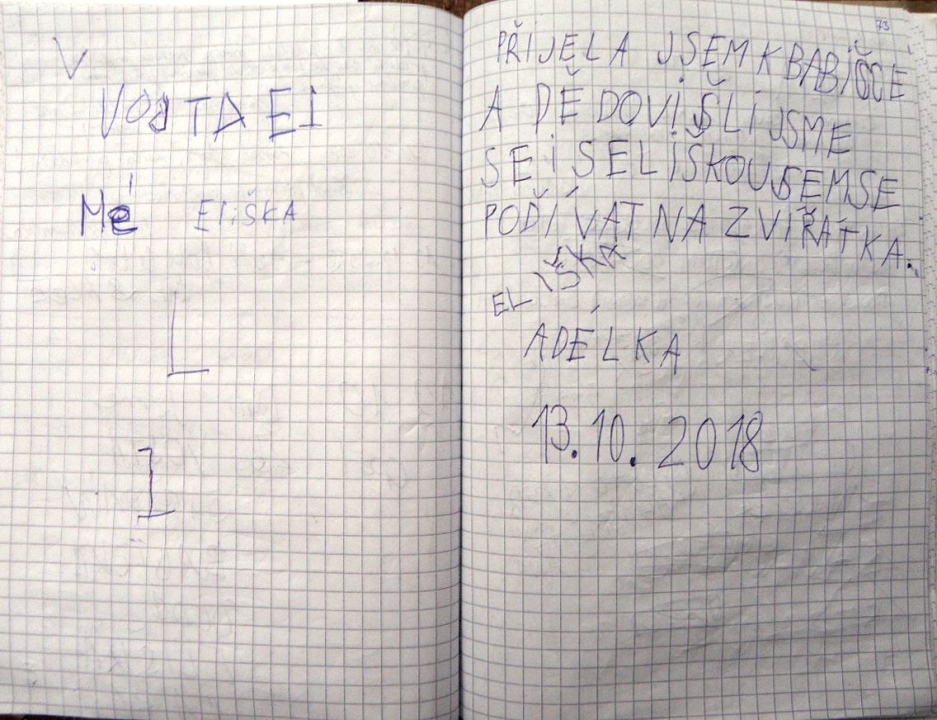 V
VOJTA EI
Mé ELIŠKA
L
I
73
PŘIJELA JSEM K BABIČCE
A DĚDOVI ŠLI JSME
SEI SELIŠKOU SEM SE
PODÍVAT NA ZVÍŘÁTKA.
ELIŠKA
ADÉLKA
13.10.2018